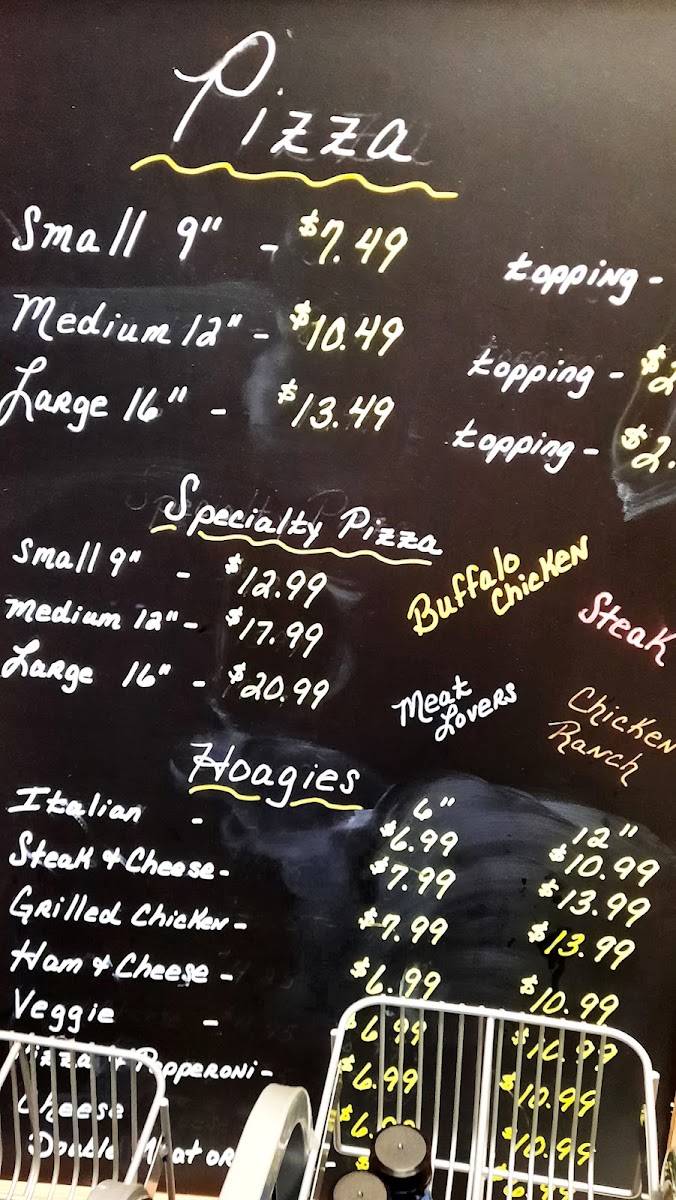 Pizza
Small 9" - $7.49 topping -
Medium 12" - $10.49 topping - $2
Large 16" - $13.49 topping - $2.
Specialty Pizza
Small 9" - $12.99
medium 12" - $17.99
Large 16" - $20.99
Buffalo
Chicken
Steak
Meat
Lovers
Chicken
Ranch
Hoagies
6" 12"
Italian - $6.99 $10.99
Steak & Cheese - $7.99 $13.99
Grilled Chicken - $7.99 $13.99
Ham & Cheese - $6.99 $10.99
Veggie - $6.99 $10.99
Pizza & Pepperoni - $6.99 $10.99
Cheese $6. $10.99
Double Meat or